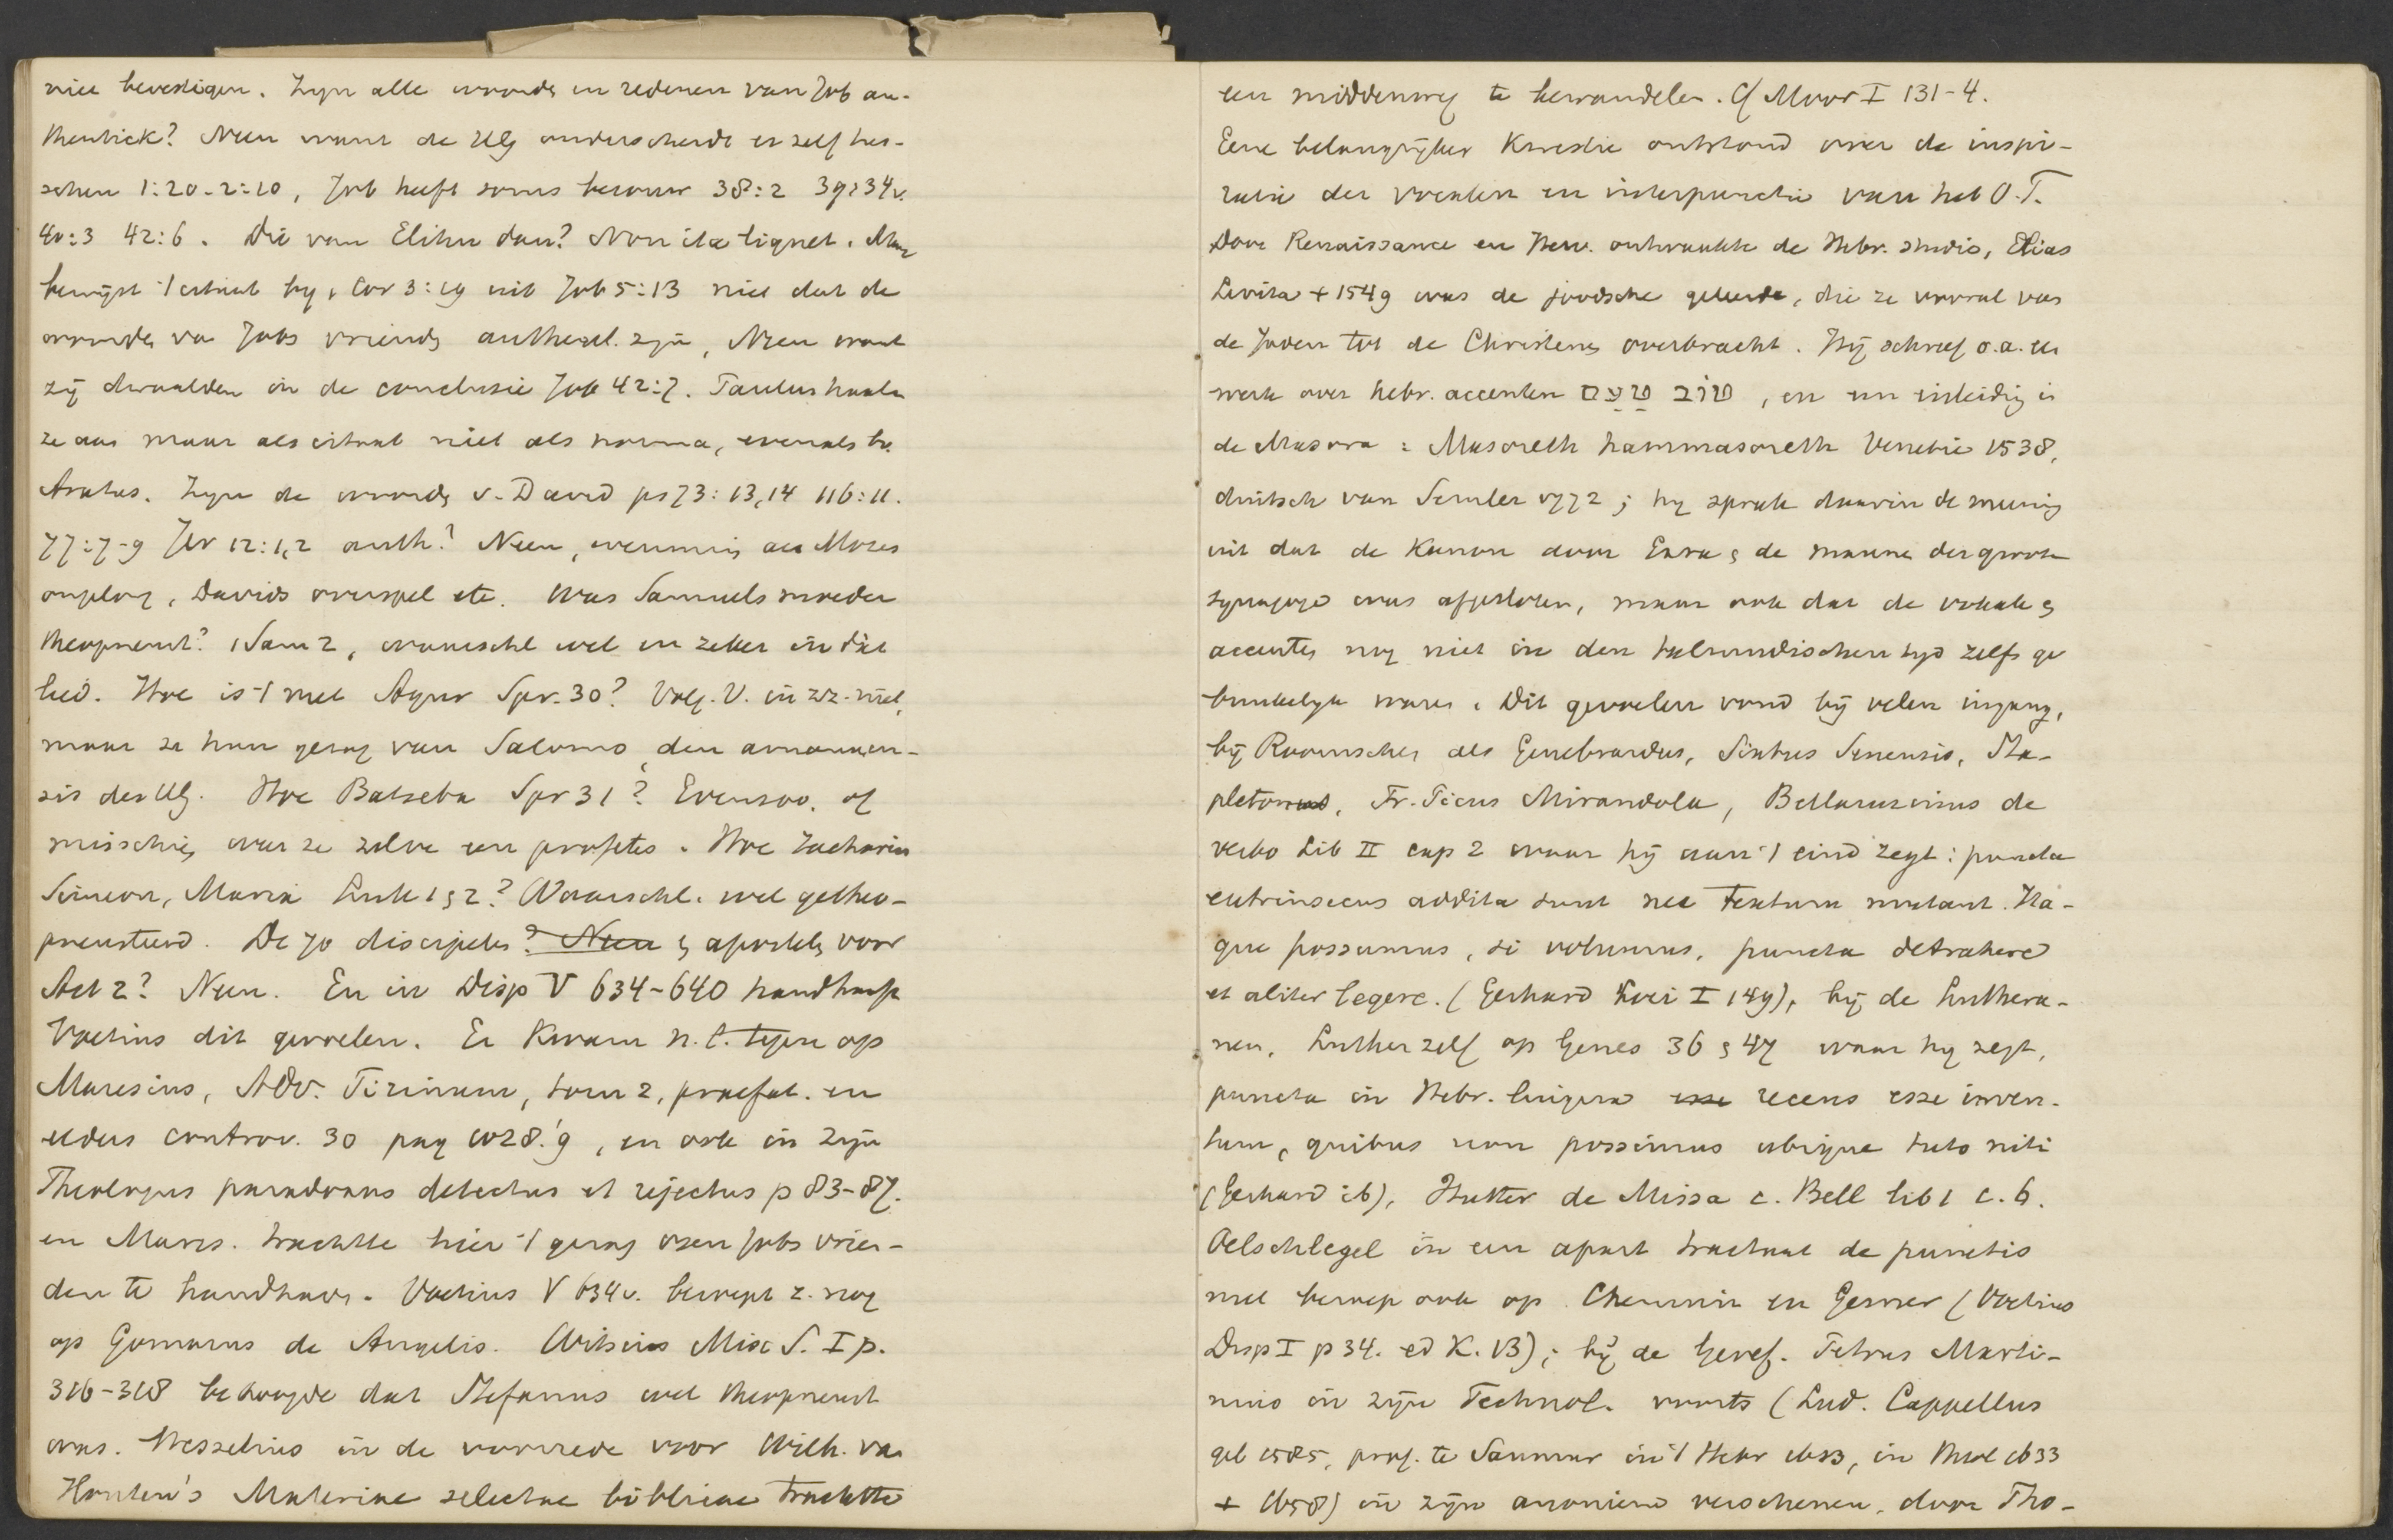 niet bevestigen. Zijn alle woorden en redenen van Job au-
thentiek? Neen want de HG onderscheidt er zelf tus-
schen 1:20-2:10, Job heeft soms berouw 38:2 39:34v.
40:3 42:6. Die van Elihu dan? Non ita liquet. Maar
bewijst 't citaat bij 1 Cor 3:19 uit Job 5:13 niet dat de
woorden va Jobs vrienden authent. zijn, Neen want
zij dwaalden in de conclusie Job 42:7. Paulus haalt
ze aan maar als citaat niet als norma, evenals bv.
Aratus. Zijn de woorden v. David ps 73:13,14 116:11.
77:7-9 Jer 12:1,2 auth? Neen, evenmin als Mozes
ongelof, Davids overspel etc. Was Samuels moeder
theopneust? 1 Sam 2, waarschl wel en zeker in dit
lied. Hoe is 't met Agur Spr. 30? Volg. V. in zz. niet,
maar ze had gezag van Salomo, den amanuen-
sis des HG. Hoe Batseba Spr 31? Evenzoo, of
misschien was ze zelve een profetes. Hoe Zacharias
Simeon, Maria Luk 1 & 2? Waarschl. wel getheo-
pneusteerd. De 70 discipelen? Neen & apostelen voor
Act 2? Neen. En in Disp V 634-640 handhaaft
Voetius dit gevoelen. Er kwam n.l. tegen op
Maresius, Adv. Tirinum, tom 2, praefat. en
eldus controv. 30 pag 1028.'9, en ook in zijn
Theologus paradoxus detectus et rejectus p 83-87.
en Mares. trachtte hier 't gezag van Jobs vrien-
den te handhaven. Voetius V 634v. beroept z. nog
op Gomarus de Angelis. Witsius Misc S. I p.
316-318 betoogde dat Stefanus wel theopneust
was. Wesselius in de voorrede voor Wilh. va
Houten's Materiae selectae biblicae trachtte
een middenweg te bewandelen. Cf Moor I 131-4.
Eene belangrijker kwestie ontstond over de inspi-
ratie der vocalen en interpunctie van het O.T.
Door Renaissance en Herv. ontwaakte de Hebr. studie, Elias
Levita + 1549 was de joodsche geleerde, die ze vooral van
de Joden tot de Christenen overbracht. Hij schreef o.a. een
werk over hebr. accenten טוב טעם, en een inleiding i
de Masora: Masoreth hammasoreth Venetie 1538,
duitsch van Semler 1772; hij sprak daarin de meening
uit dat de Kanon door Ezra & de mannen der groote
synagoge was afgesloten, maar ook dat de vokalen &
accenten nog niet in den talmudischen tijd zelfs ge
bruikelijk waren. Dit gevoelen vond bij velen ingang,
bij Roomschen als Genebrardus, Sixtus Senensis, Sta-
pleton, Fr. Picus Mirandola, Bellarminus de
verbo Lib II cap 2 waar hij aan 't eind zegt: puncta
extrinsecus addita sunt nec textum mutant. Ita-
que possumus, si volumus, puncta detrahere
et aliter legere. (Gerhard Loci I 149), bij de Luthera-
nen, Luther zelf op Genes 36 & 47 waar hij zegt,
puncta in Hebr. lingua esse recens esse inven-
tum, quibus non possimus ubique tuto niti
(Gerhard ib), Hutter de Missa c. Bell lib 1 c. 6.
Oelschlegel in een apart tractaat de punctis
met beroep ook op Chemniz en Gesner (Voetius
Disp I p 34. ed K. 13); bij de Geref. Petrus Marti-
nius in zijn Technol. voorts (Lud. Cappellus
geb 1585, prof. te Saumur in 't Hebr 1613, in theol 1633
+ 1658) in zijn anoniem verschenen, door Tho-